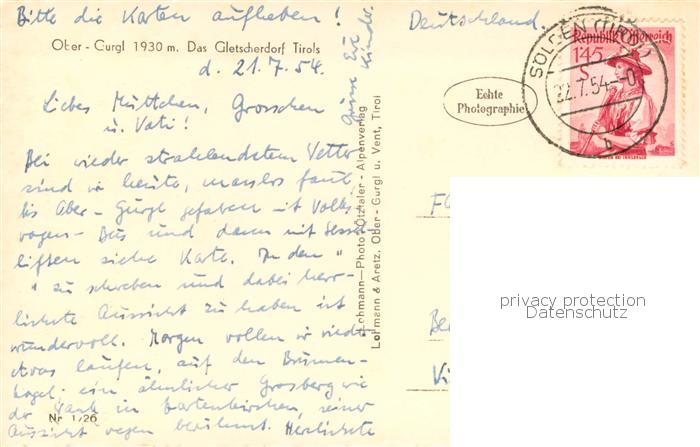 Bitte die Karten aufheben!
Deutschland.
Ober - Gurgl 1930 m. Das Gletscherdorf Tirols
d. 21.7.54.
Liebes Muttchen, Grosschen
u. Vati!
Bei wieder strahlendstem Wetter
sind wir heute, masslos faul,
bis Ober - Gurgl gefahren mit Volks-
wagen - Bus und dann mit Sessel-
liften siehe Karte. In den "
" zu schweben und dabei herr-
lichste Aussicht zu haben ist
wundervoll. Morgen wollen wir wieder
etwas laufen, auf den Brunnen-
kogel, ein ähnlicher Grasberg wie
der Wank in Partenkirchen, seiner
Aussicht wegen berühmt. Herzlichste
Kinder.
Nr. 1/26
Lohmann—Photo Ötztaler - Alpenverlag
Lohmann & Aretz, Ober - Gurgl u. Vent, Tirol
Echte
Photographie
SÖLDEN (TIROL)
22.7.54
b
Republik Österreich
145
S
privacy protection
Datenschutz